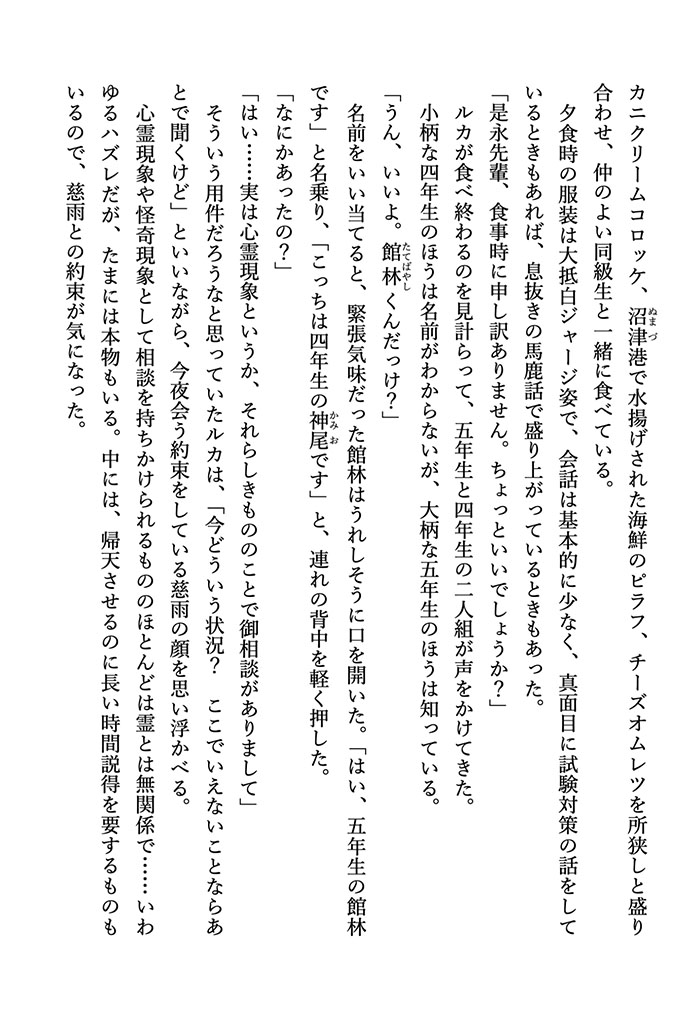 カニクリームコロッケ、沼津港で水揚げされた海鮮のピラフ、チーズオムレツを所狭しと盛り
合わせ、仲のよい同級生と一緒に食べている。
夕食時の服装は大抵白ジャージ姿で、会話は基本的に少なく、真面目に試験対策の話をして
いるときもあれば、息抜きの馬鹿話で盛り上がっているときもあった。
「是永先輩、食事時に申し訳ありません。ちょっといいでしょうか?」
ルカが食べ終わるのを見計らって、五年生と四年生の二人組が声をかけてきた。
小柄な四年生のほうは名前がわからないが、大柄な五年生のほうは知っている。
「うん、いいよ。館林くんだっけ?」
名前をいい当てると、緊張気味だった館林はうれしそうに口を開いた。「はい、五年生の館林
です」と名乗り、「こっちは四年生の神尾です」と、連れの背中を軽く押した。
「なにかあったの?」
「はい……実は心霊現象というか、それらしきもののことで御相談がありまして」
そういう用件だろうなと思っていたルカは、「今どういう状況? ここでいえないことならあ
とで聞くけど」といいながら、今夜会う約束をしている慈雨の顔を思い浮かべる。
心霊現象や怪奇現象として相談を持ちかけられるもののほとんどは霊とは無関係で……いわ
ゆるハズレだが、たまには本物もいる。中には、帰天させるのに長い時間説得を要するものも
いるので、慈雨との約束が気になった。